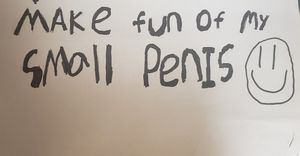 MAKE fun of my
SMall PeNIS